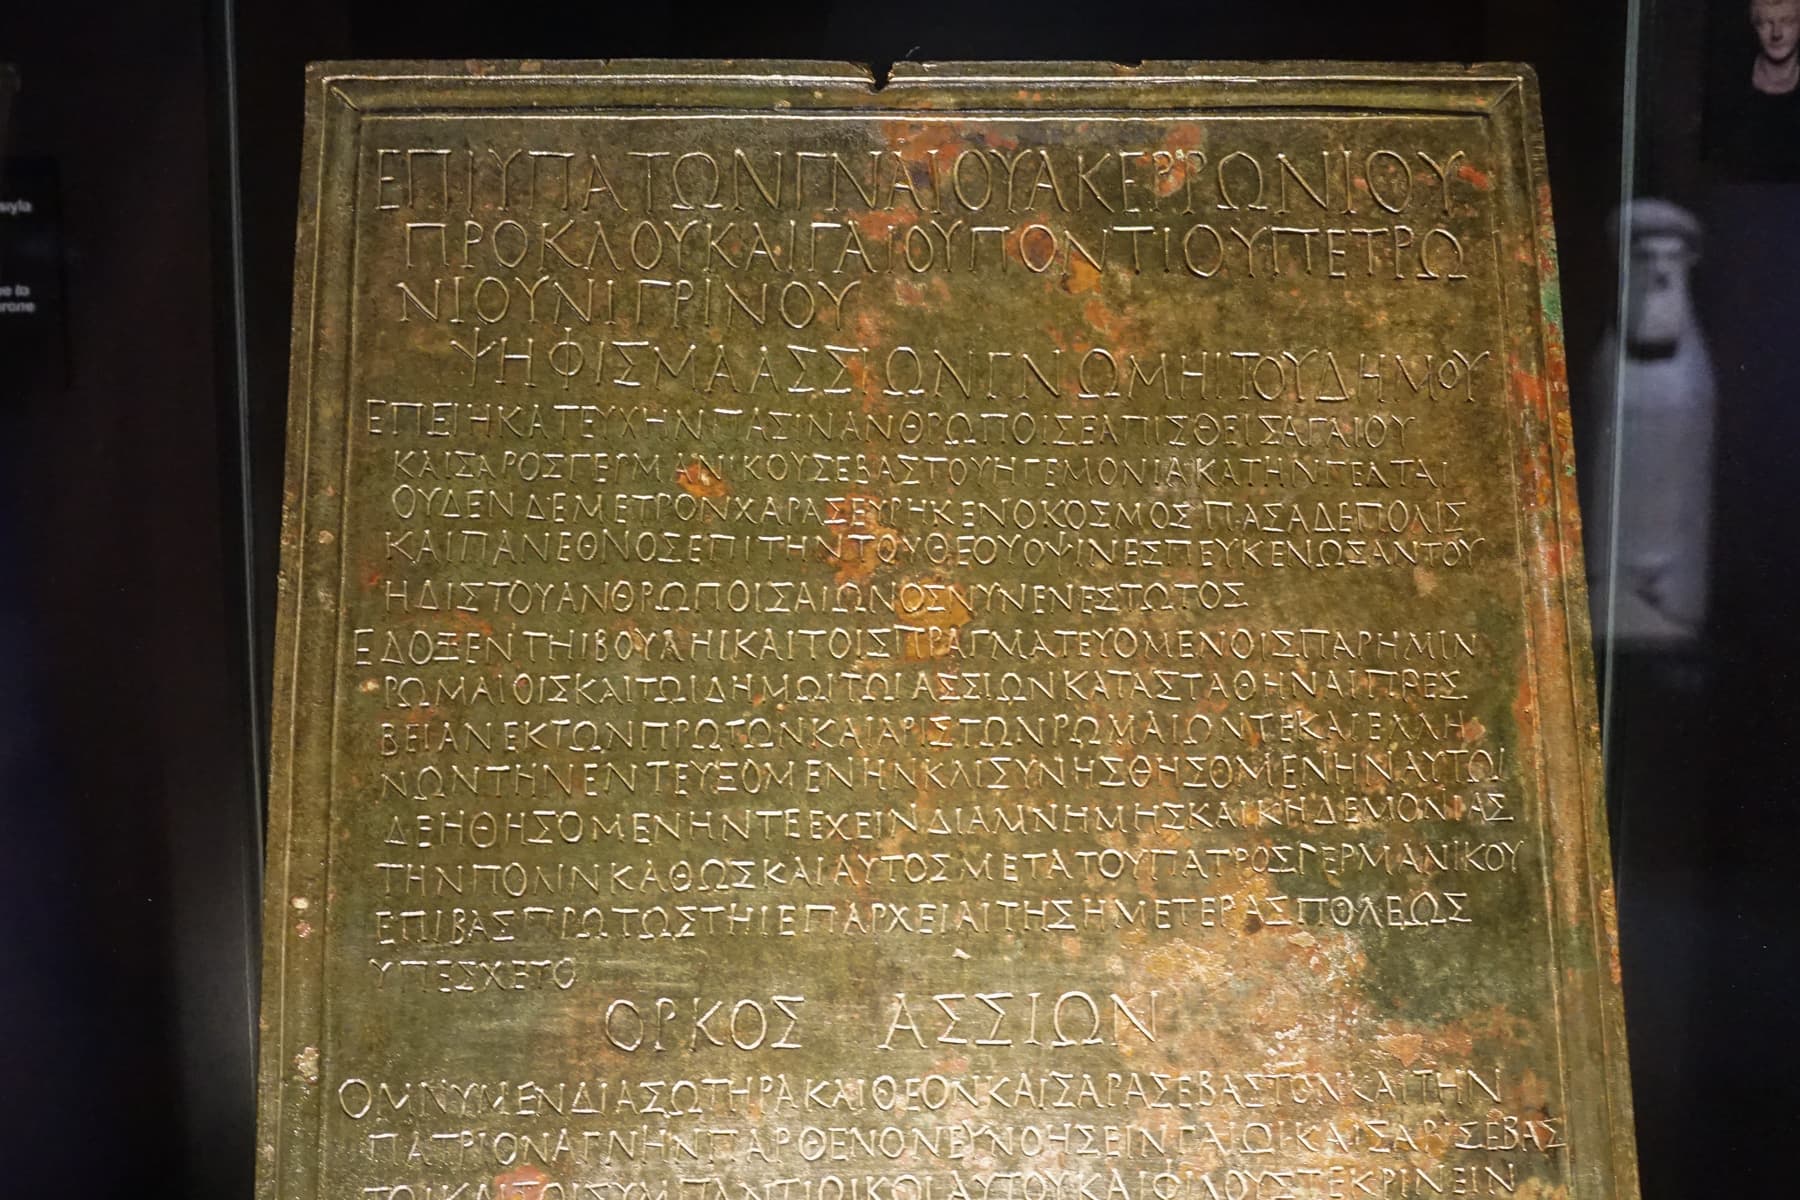 ΕΠΙΥΠΑΤΩΝΓΝΑΙΟΥΑΚΕΡΡΩΝΙΟΥ
ΠΡΟΚΛΟΥΚΑΙΓΑΙΟΥΠΟΝΤΙΟΥΠΕΤΡΩ
ΝΙΟΥΝΙΓΡΙΝΟΥ
ΨΗΦΙΣΜΑΑΣΣΙΩΝΓΝΩΜΗΙΤΟΥΔΗΜΟΥ
ΕΠΕΙΗΚΑΤΕΥΧΗΝΠΑΣΙΝΑΝΘΡΩΠΟΙΣΕΛΠΙΣΘΕΙΣΑΓΑΙΟΥ
ΚΑΙΣΑΡΟΣΓΕΡΜΑΝΙΚΟΥΣΕΒΑΣΤΟΥΗΓΕΜΟΝΙΑΚΑΤΗΝΓΕΛΤΑΙ
ΟΥΔΕΝΔΕΜΕΤΡΟΝΧΑΡΑΣΕΥΡΗΚΕΝΟΚΟΣΜΟΣΠΑΣΑΔΕΠΟΛΙΣ
ΚΑΙΠΑΝΕΘΝΟΣΕΠΙΤΗΝΤΟΥΘΕΟΥΟΨΙΝΕΣΠΕΥΚΕΝΩΣΑΝΤΟΥ
ΗΔΙΣΤΟΥΑΝΘΡΩΠΟΙΣΑΙΩΝΟΣΝΥΝΕΝΕΣΤΩΤΟΣ
ΕΔΟΞΕΝΤΗΙΒΟΥΛΗΙΚΑΙΤΟΙΣΠΡΑΓΜΑΤΕΥΟΜΕΝΟΙΣΠΑΡΗΜΙΝ
ΡΩΜΑΙΟΙΣΚΑΙΤΩΙΔΗΜΩΙΤΩΙΑΣΣΙΩΝΚΑΤΑΣΤΑΘΗΝΑΙΠΡΕΣ
ΒΕΙΑΝΕΚΤΩΝΠΡΩΤΩΝΚΑΙΑΡΙΣΤΩΝΡΩΜΑΙΩΝΤΕΚΑΙΕΛΛΗ
ΝΩΝΤΗΝΕΝΤΕΥΞΟΜΕΝΗΝΚΑΙΣΥΝΗΣΘΗΣΟΜΕΝΗΝΑΥΤΩΙ
ΔΕΗΘΗΣΟΜΕΝΗΝΤΕΕΧΕΙΝΔΙΑΜΝΗΜΗΣΚΑΙΚΗΔΕΜΟΝΙΑΣ
ΤΗΝΠΟΛΙΝΚΑΘΩΣΚΑΙΑΥΤΟΣΜΕΤΑΤΟΥΠΑΤΡΟΣΓΕΡΜΑΝΙΚΟΥ
ΕΠΙΒΑΣΠΡΩΤΩΣΤΗΙΕΠΑΡΧΕΙΑΙΤΗΣΗΜΕΤΕΡΑΣΠΟΛΕΩΣ
ΥΠΕΣΧΕΤΟ
ΟΡΚΟΣ ΑΣΣΙΩΝ
ΟΜΝΥΜΕΝΔΙΑΣΩΤΗΡΑΚΑΙΘΕΟΝΚΑΙΣΑΡΑΣΕΒΑΣΤΟΝΚΑΙΤΗΝ
ΠΑΤΡΙΟΝΑΓΝΗΝΠΑΡΘΕΝΟΝΕΥΝΟΗΣΕΙΝΓΑΙΩΙΚΑΙΣΑΡΙΣΕΒΑΣ
ΤΩΙΚΑΙΤΩΙΣΥΜΠΑΝΤΙΟΙΚΩΙΑΥΤΟΥΚΑΙΦΙΛΟΥΣΤΕΚΡΙΝΕΙΝ